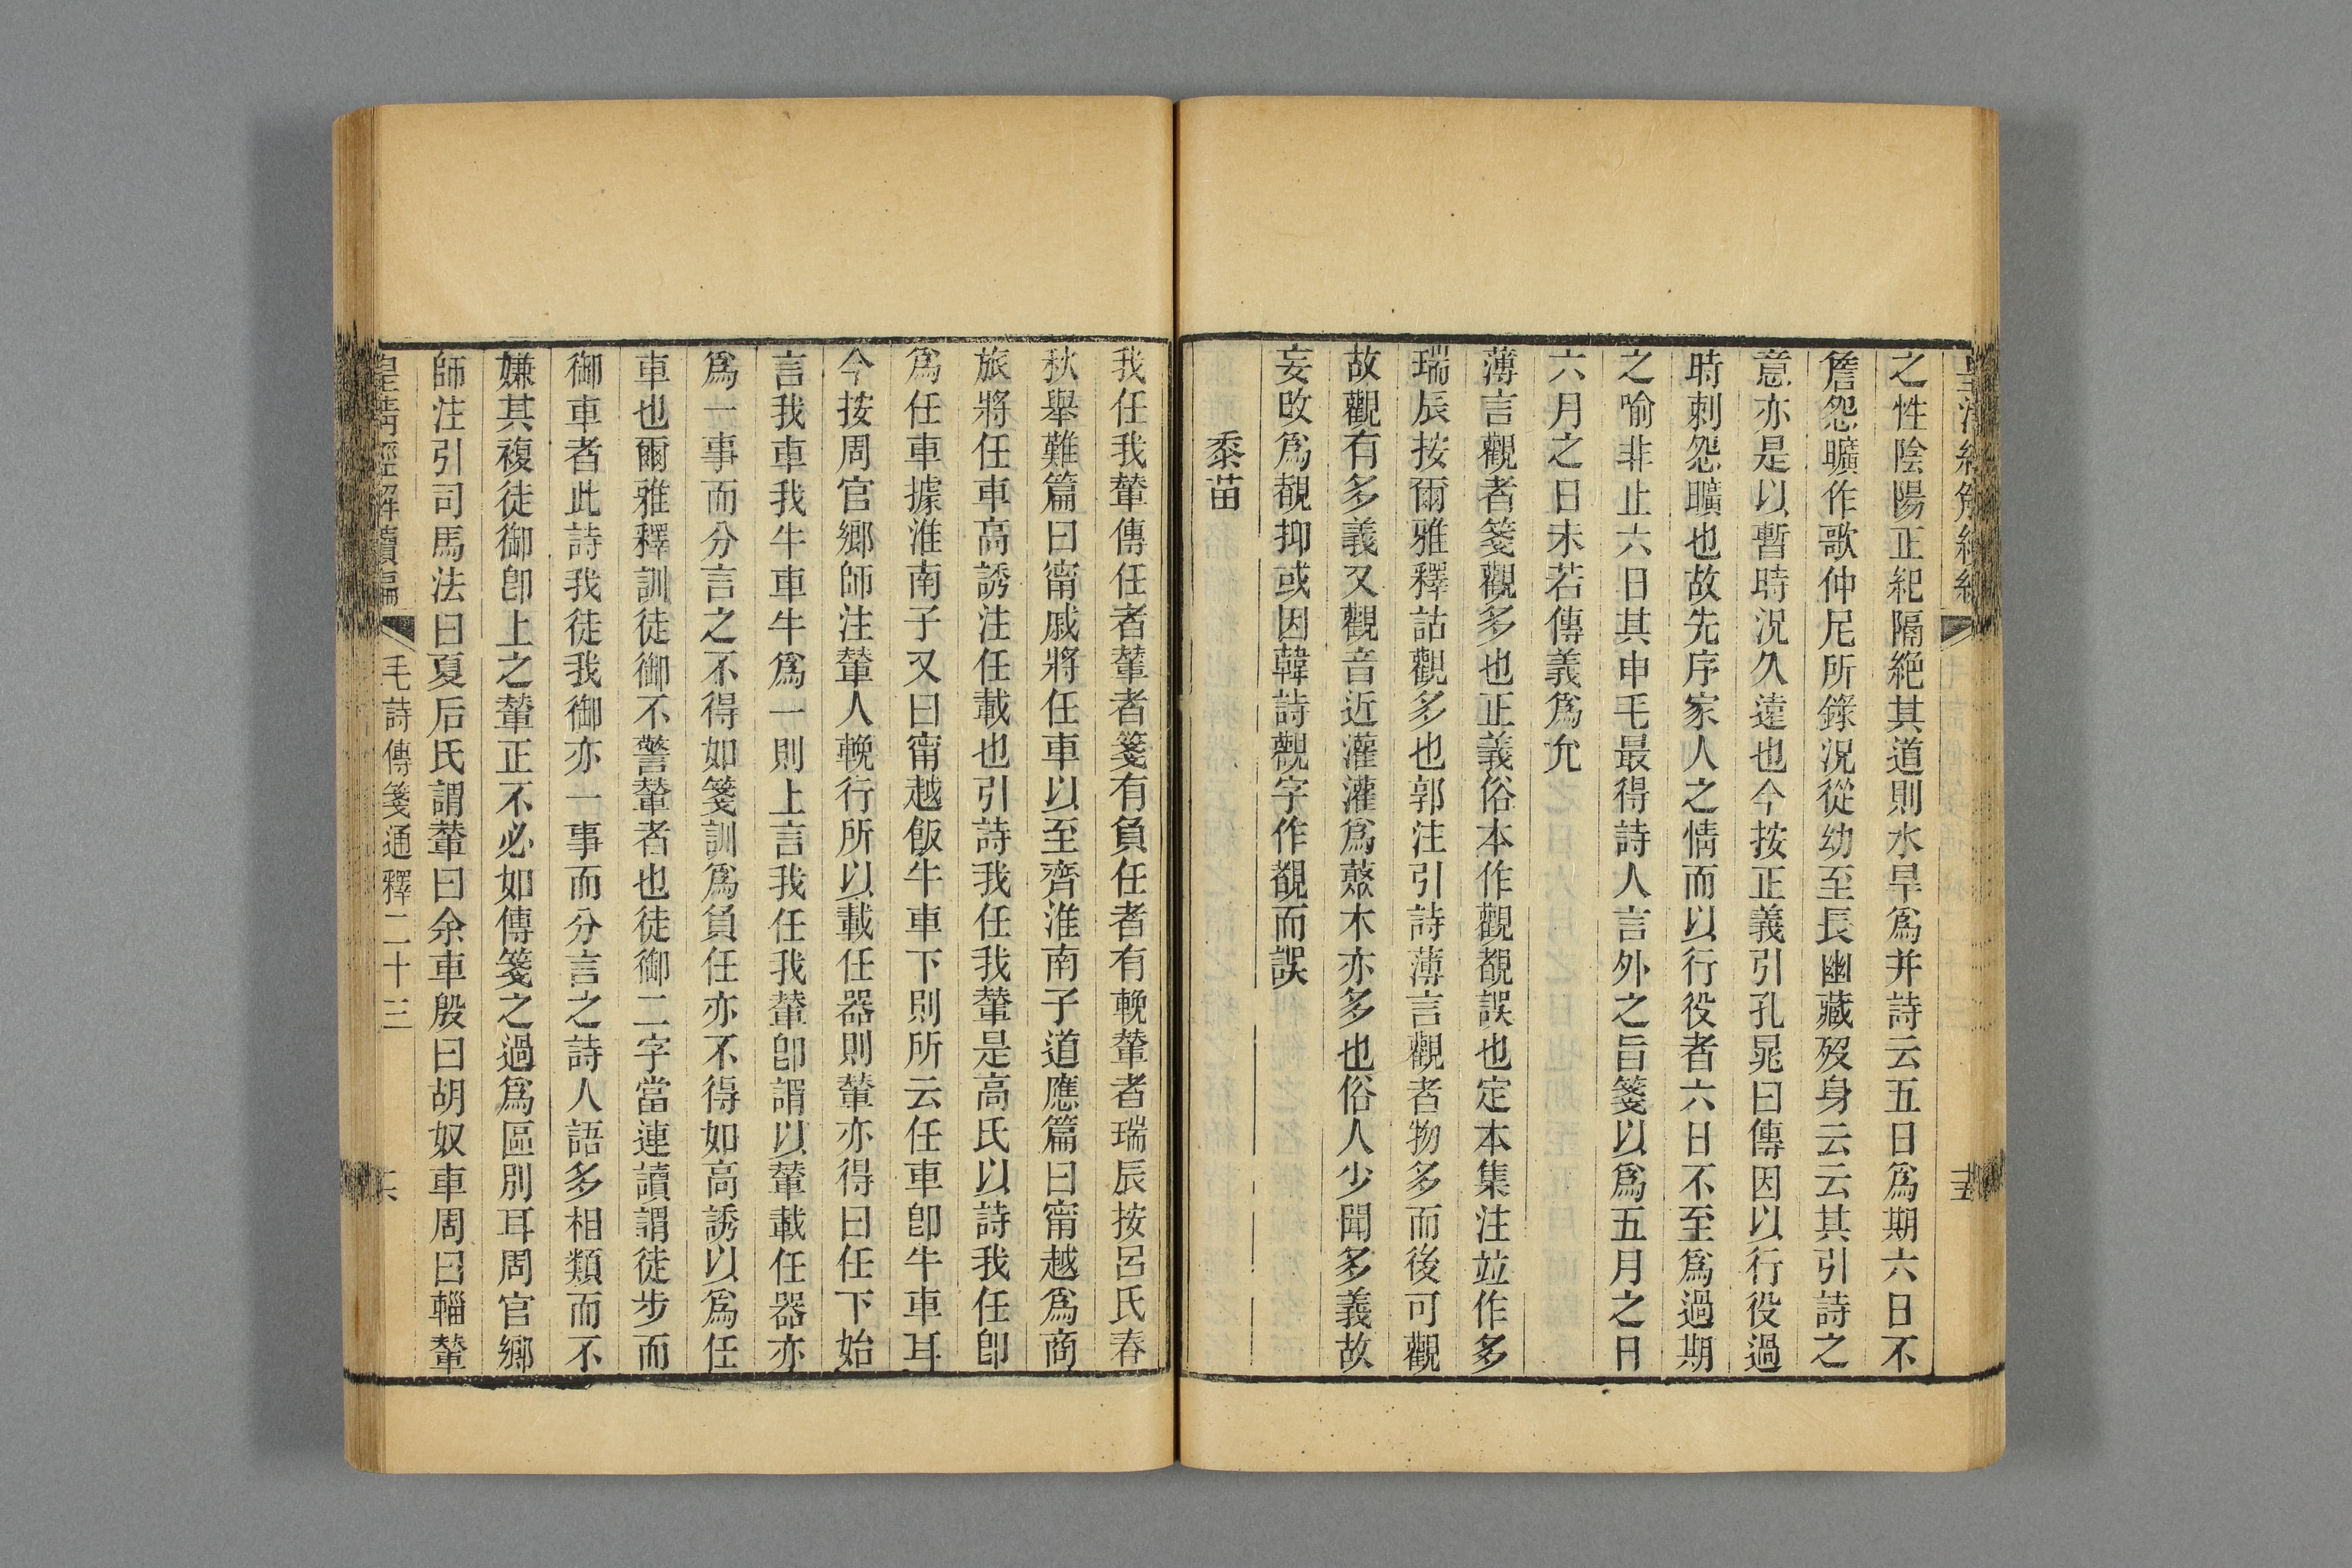 之性陰陽正紀隔絶其道則水旱爲并詩云五日爲期六日不
詹怨曠作歌仲尼所錄況從幼至長幽藏歿身云云其引詩之
意亦是以暫時況久遠也今按正義引孔晁曰傳因以行役過
時刺怨曠也故先序家人之情而以行役者六日不至爲過期
之喻非止六日其申毛最得詩人言外之旨箋以爲五月之日
六月之日未若傳義爲允
薄言觀者箋觀多也正義俗本作觀覩誤也定本集注竝作多
瑞辰按爾雅釋詁觀多也郭注引詩薄言觀者物多而後可觀
故觀有多義又觀音近灌灌爲藂木亦多也俗人少聞多義故
妄改爲覩抑或因韓詩觀字作覩而誤
黍苗
我任我輦傳任者輦者箋有負任者有輓輦者瑞辰按呂氏春
秋舉難篇曰甯戚將任車以至齊淮南子道應篇曰甯越爲商
旅將任車高誘注任載也引詩我任我輦是高氏以詩我任卽
爲任車據淮南子又曰甯越飯牛車下則所云任車卽牛車耳
今按周官鄉師注輦人輓行所以載任器則輦亦得曰任下始
言我車我牛車牛爲一則上言我任我輦卽謂以輦載任器亦
爲一事而分言之不得如箋訓爲負任亦不得如高誘以爲任
車也爾雅釋訓徒御不警輦者也徒御二字當連讀謂徒步而
御車者此詩我徒我御亦一事而分言之詩人語多相類而不
嫌其複徒御卽上之輦正不必如傳箋之過爲區別耳周官鄉
師注引司馬法曰夏后氏謂輦曰余車殷曰胡奴車周曰輜輦
皇清經解續編 毛詩傳箋通釋二十三